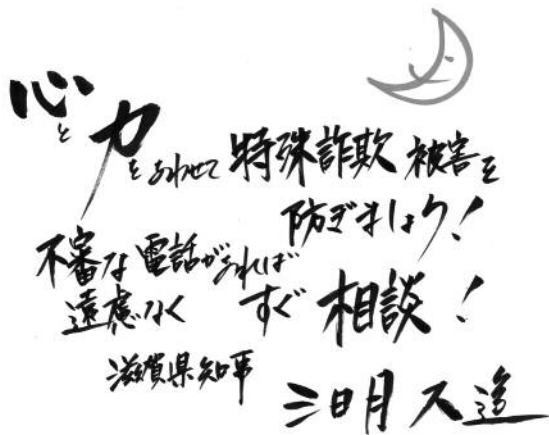 心と力をあわせて特殊詐欺被害を
防ぎましょう!
不審な電話があれば
遠慮なく すぐ 相談!
滋賀県知事
三日月大造